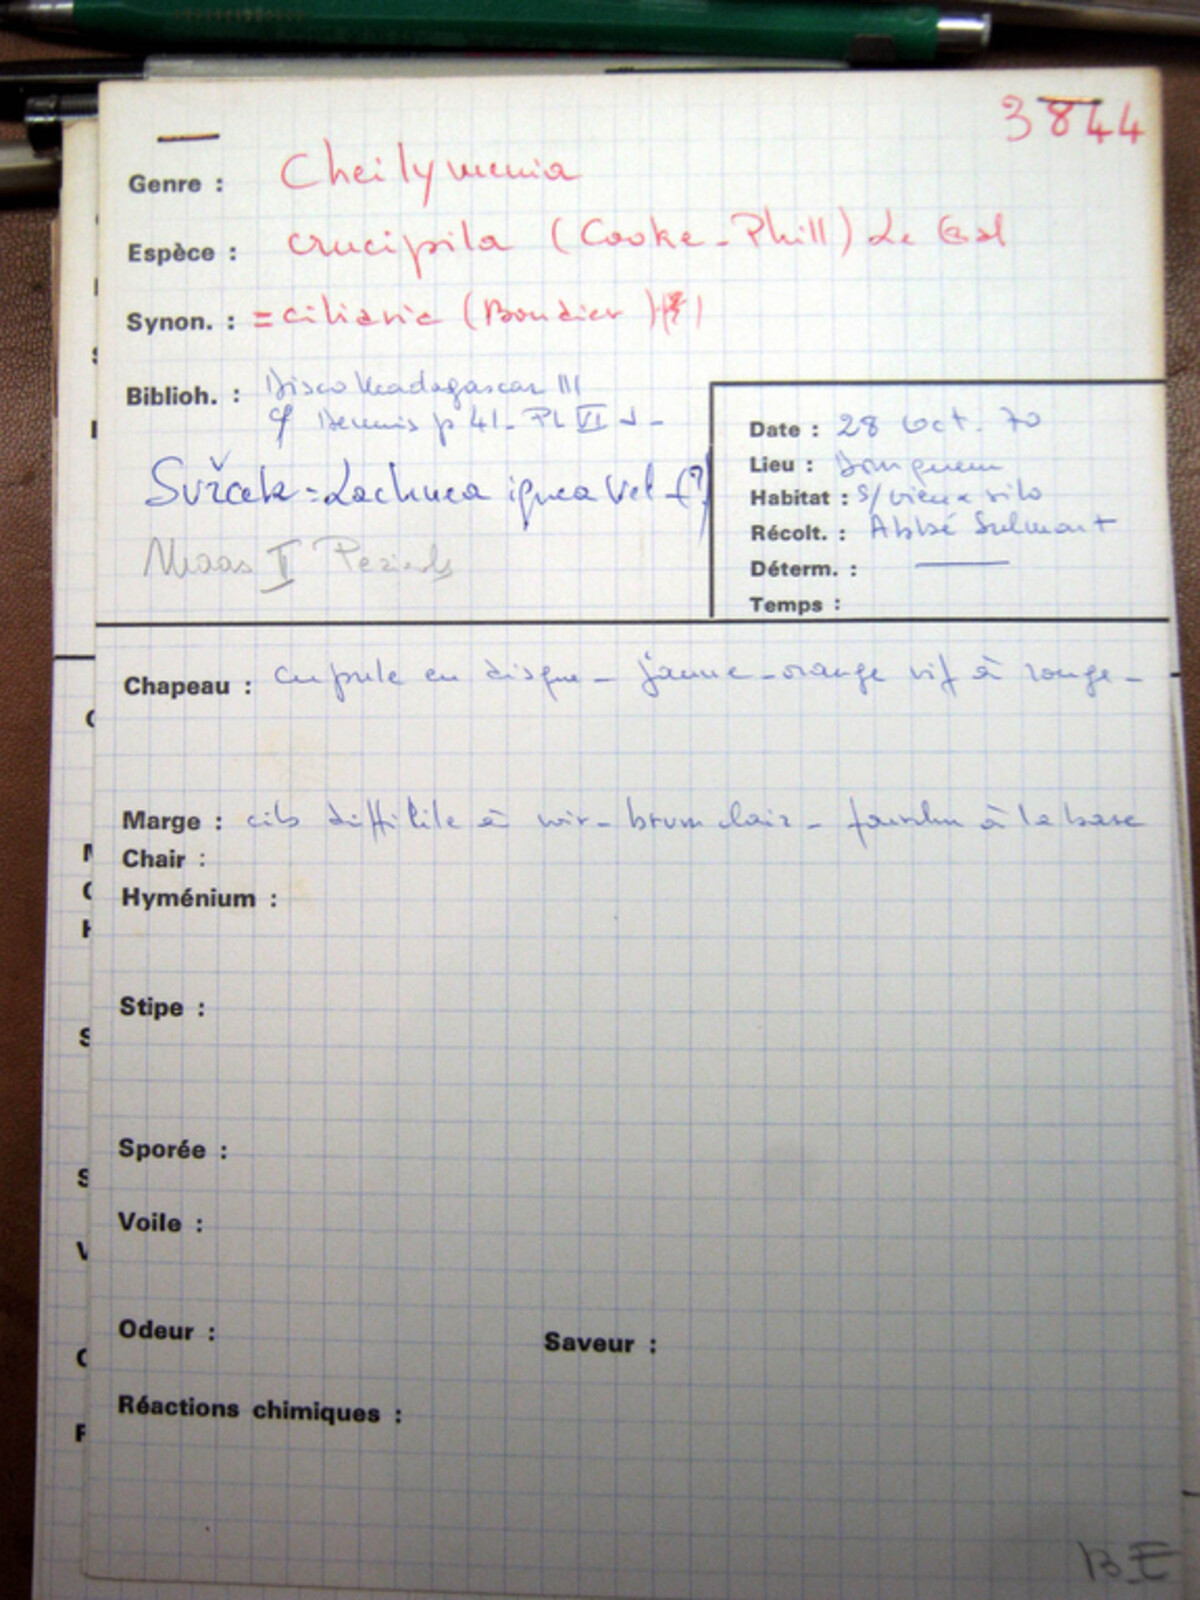 3844
Genre : Cheilymenia
Espèce : crucipila (Cooke-Phill) Le Gal
Synon. : = ciliaria (Boudier)
Biblioh. : Disco Madagascar III
cf Dennis p 41- Pl VI
Svrček = Lachnea ignea Vel (?)
Maas II Pezizales
Date : 28 Oct. 70
Lieu :
Habitat : s/ vieux silo
Récolt. : Abbé Sulmont
Déterm. : ——
Temps :
Chapeau : cupule en disque - jaune-orange vif à rouge -
Marge : cils difficile à voir - brun clair - fourchu à la base
Chair :
Hyménium :
Stipe :
Sporée :
Voile :
Odeur : Saveur :
Réactions chimiques :
B E